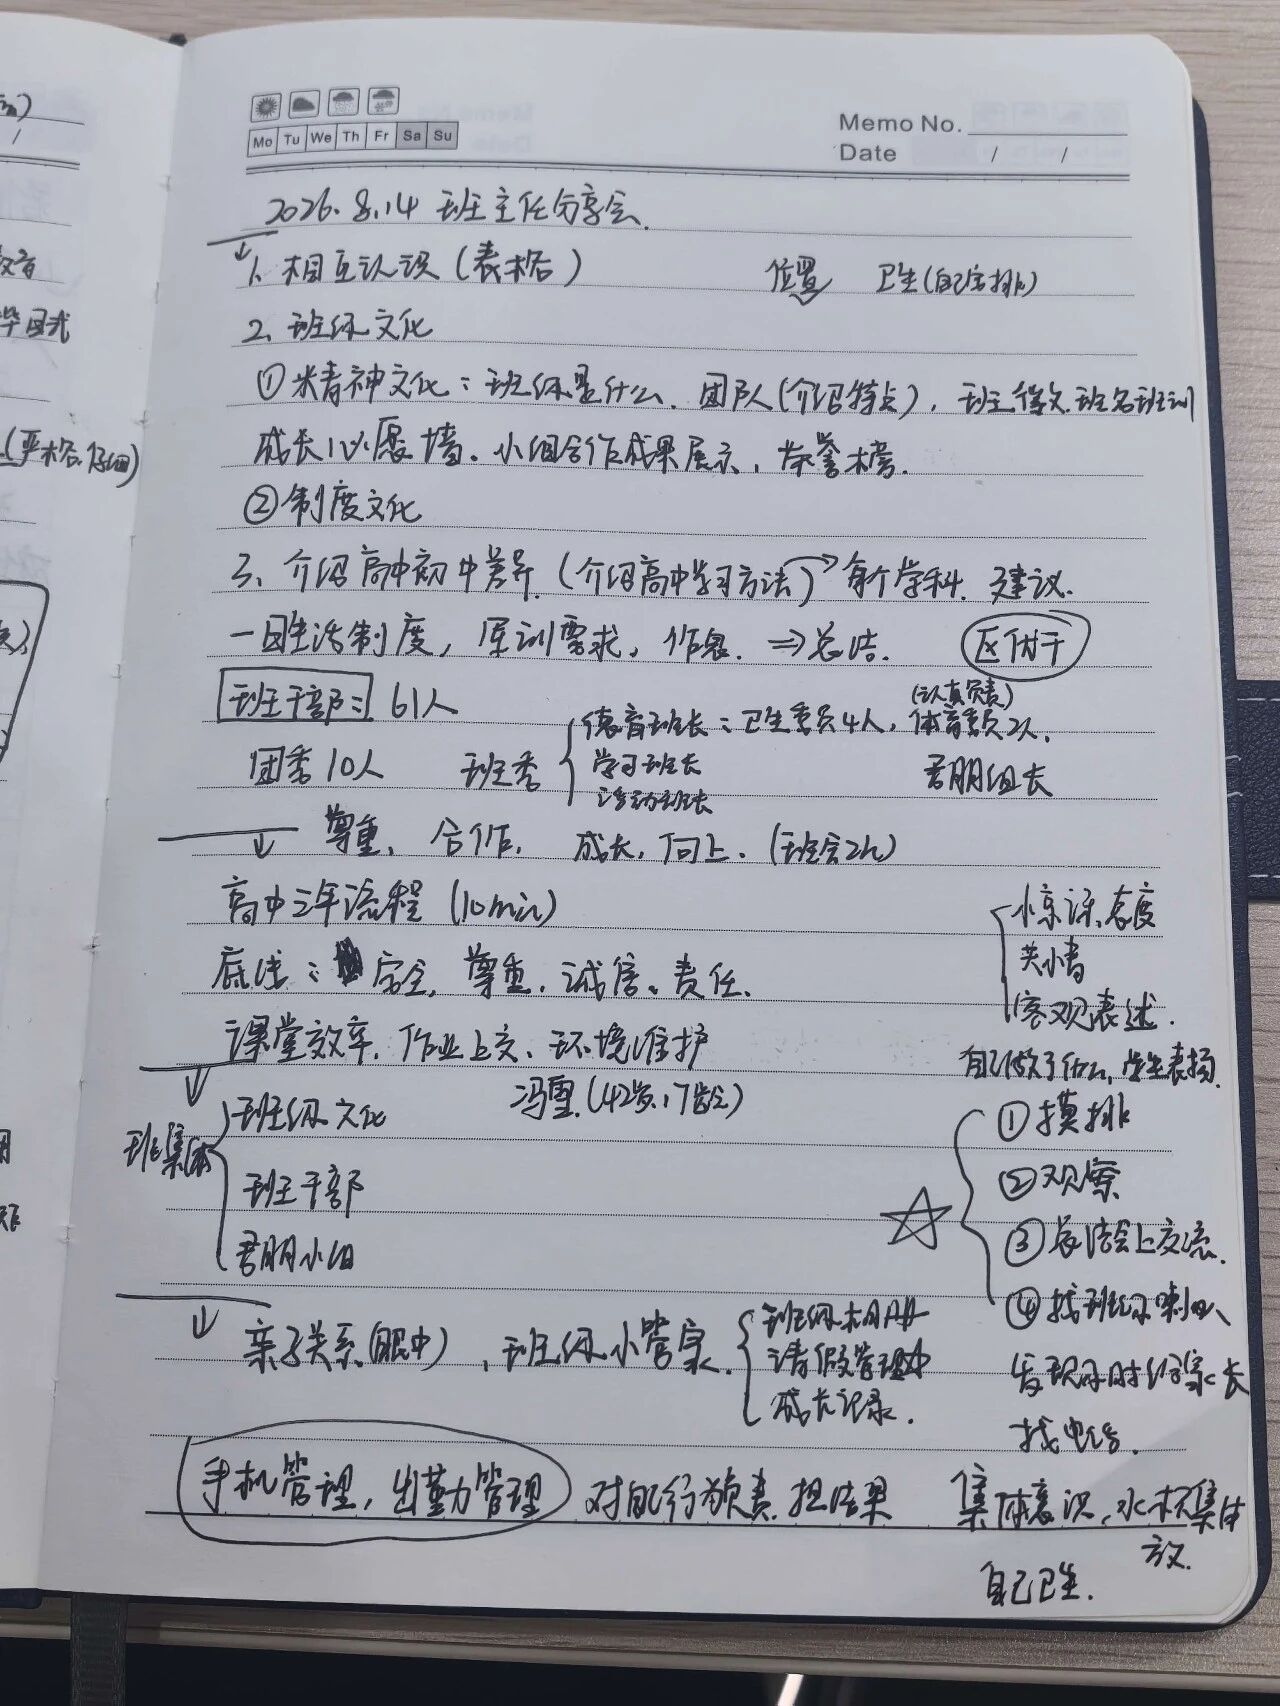 Mo Tu We Th Fr Sa Su
Memo No.
Date / /
2026.8.14 班主任分享会.
1、相互认识(表格) 位置 卫生(自己安排)
2、班级文化
①精神文化:班级是什么、团队(介绍特点),班主徽文.班名班训
成长心愿墙、小组合作成果展示,荣誉榜.
②制度文化
3、介绍高中初中差异.(介绍高中学习方法)→每个学科.建议.
一日生活制度,军训需求,作息.⇒总结.
班干部: 61人
(认真负责)
德育班长:卫生委员4人,体育委员2人.
团委10人 班委 学习班长 君朋组长
活动班长
尊重、合作、成长,向上.(班会2h)
高中三年流程(10min)
底线:安全,尊重,诚信、责任.
课堂效率,作业上交、环境维护
冯重(42岁,17龄)
班集体
班级文化
班干部
君朋小组
亲子关系(眼中)、班级小管家.
班级相册
请假管理
成长记录.
态度
客观表述.
自己做了什么,学生表扬.
①摸排
②观察
③总结会上交流.
④找班级喇叭
发现及时给家长
找电话.
手机管理,出勤管理 对自己行为负责.担结果
集体意识,水杯集体放.
自己卫生.
(严格.仔细)